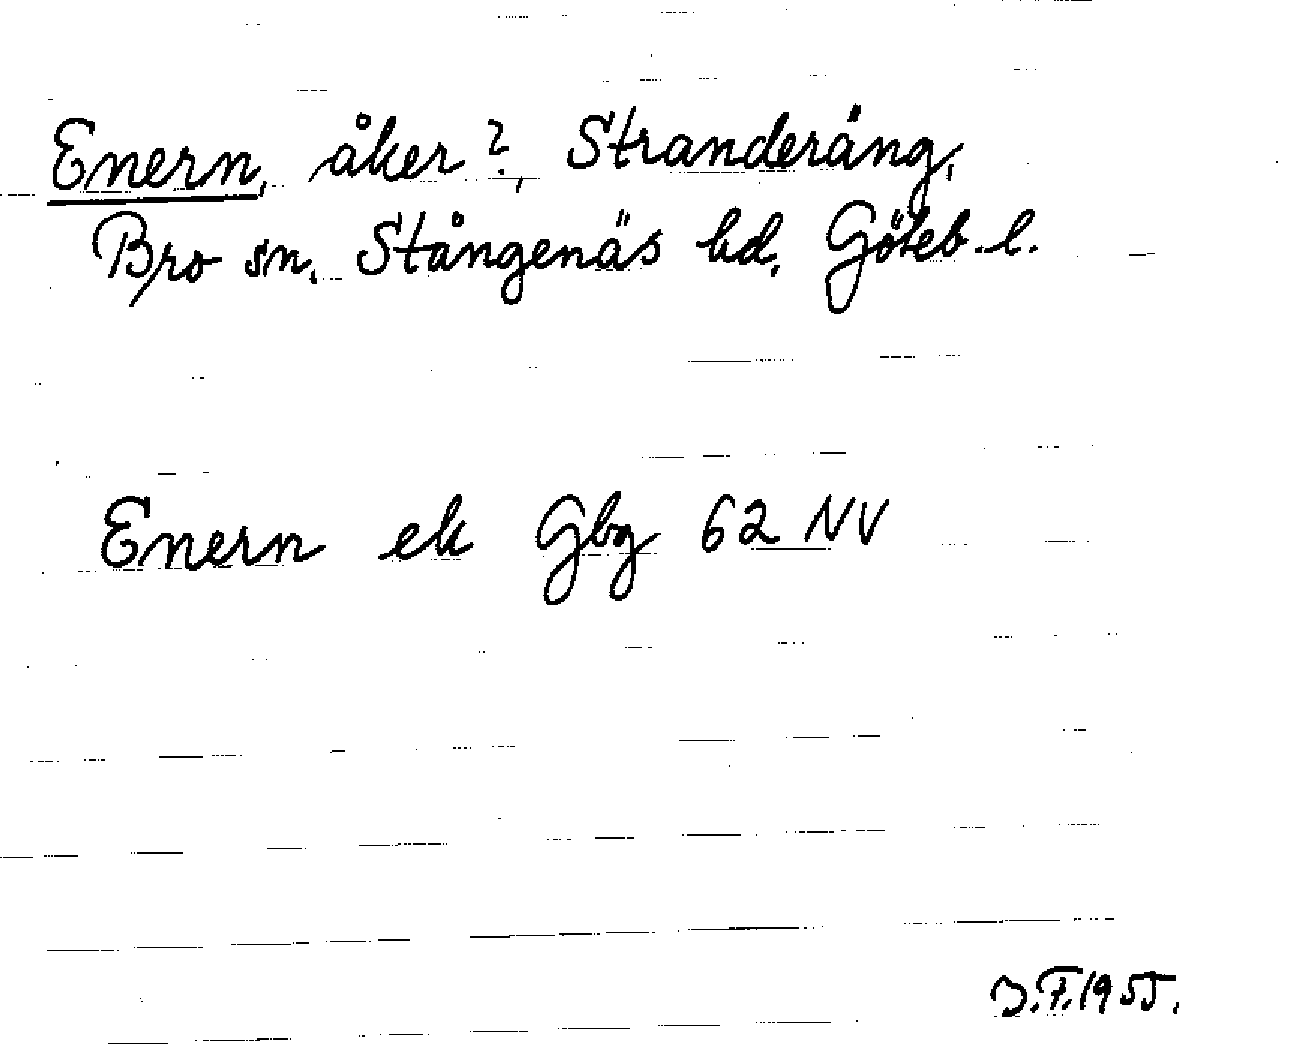 Enern, åker?, Stranderäng,
Bro sn. Stångenäs hd. Göteb. l.
Enern ek Gbg 62 NV
J.F. 1955.